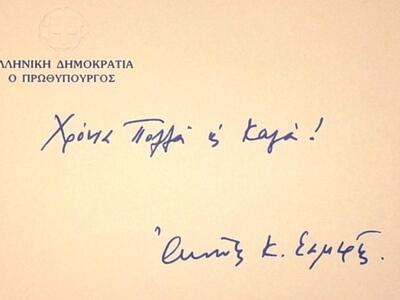 ΛΛΗΝΙΚΗ ΔΗΜΟΚΡΑΤΙΑ
Ο ΠΡΩΘΥΠΟΥΡΓΟΣ
Χρόνια Πολλά & Καλά!
Αντώνης Κ. Σαμαράς.